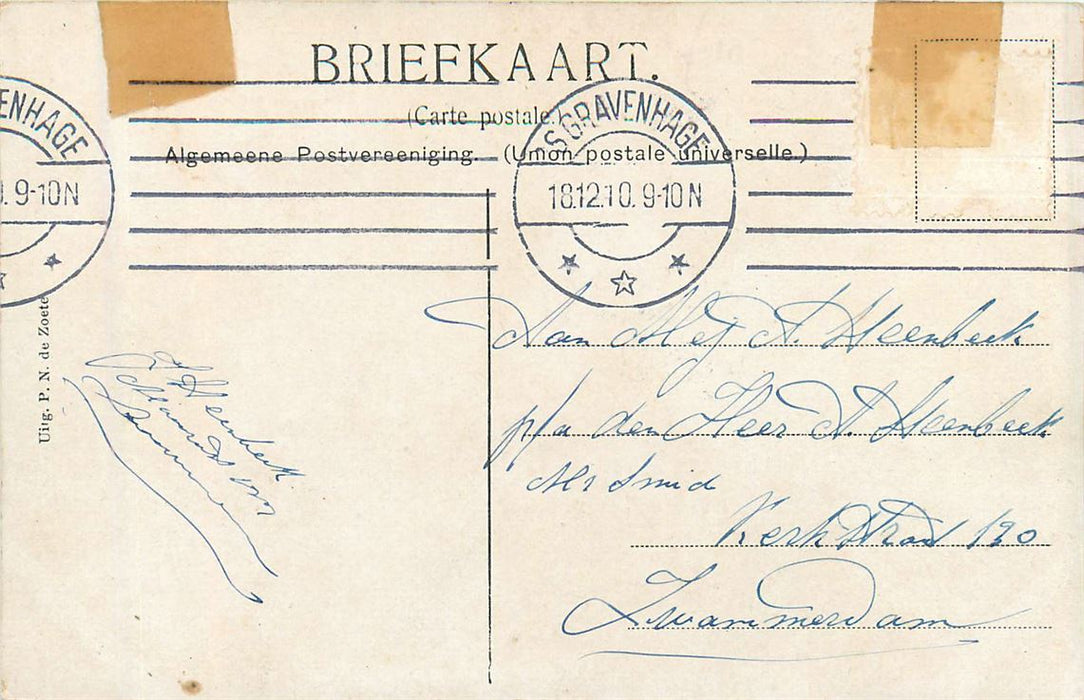 BRIEFKAART.
(Carte postale.)
Algemeene Postvereeniging. (Union postale universelle.)
ENHAGE
0. 9-10N
'S GRAVENHAGE
18.12.10. 9-10N
Uitg. P. N. de Zoete
Aan Mej A. Heenbeek
p/a den Heer A. Heenbeek
Mr Smid
Kerkstraat 130
Zwammerdam
Heenbeek